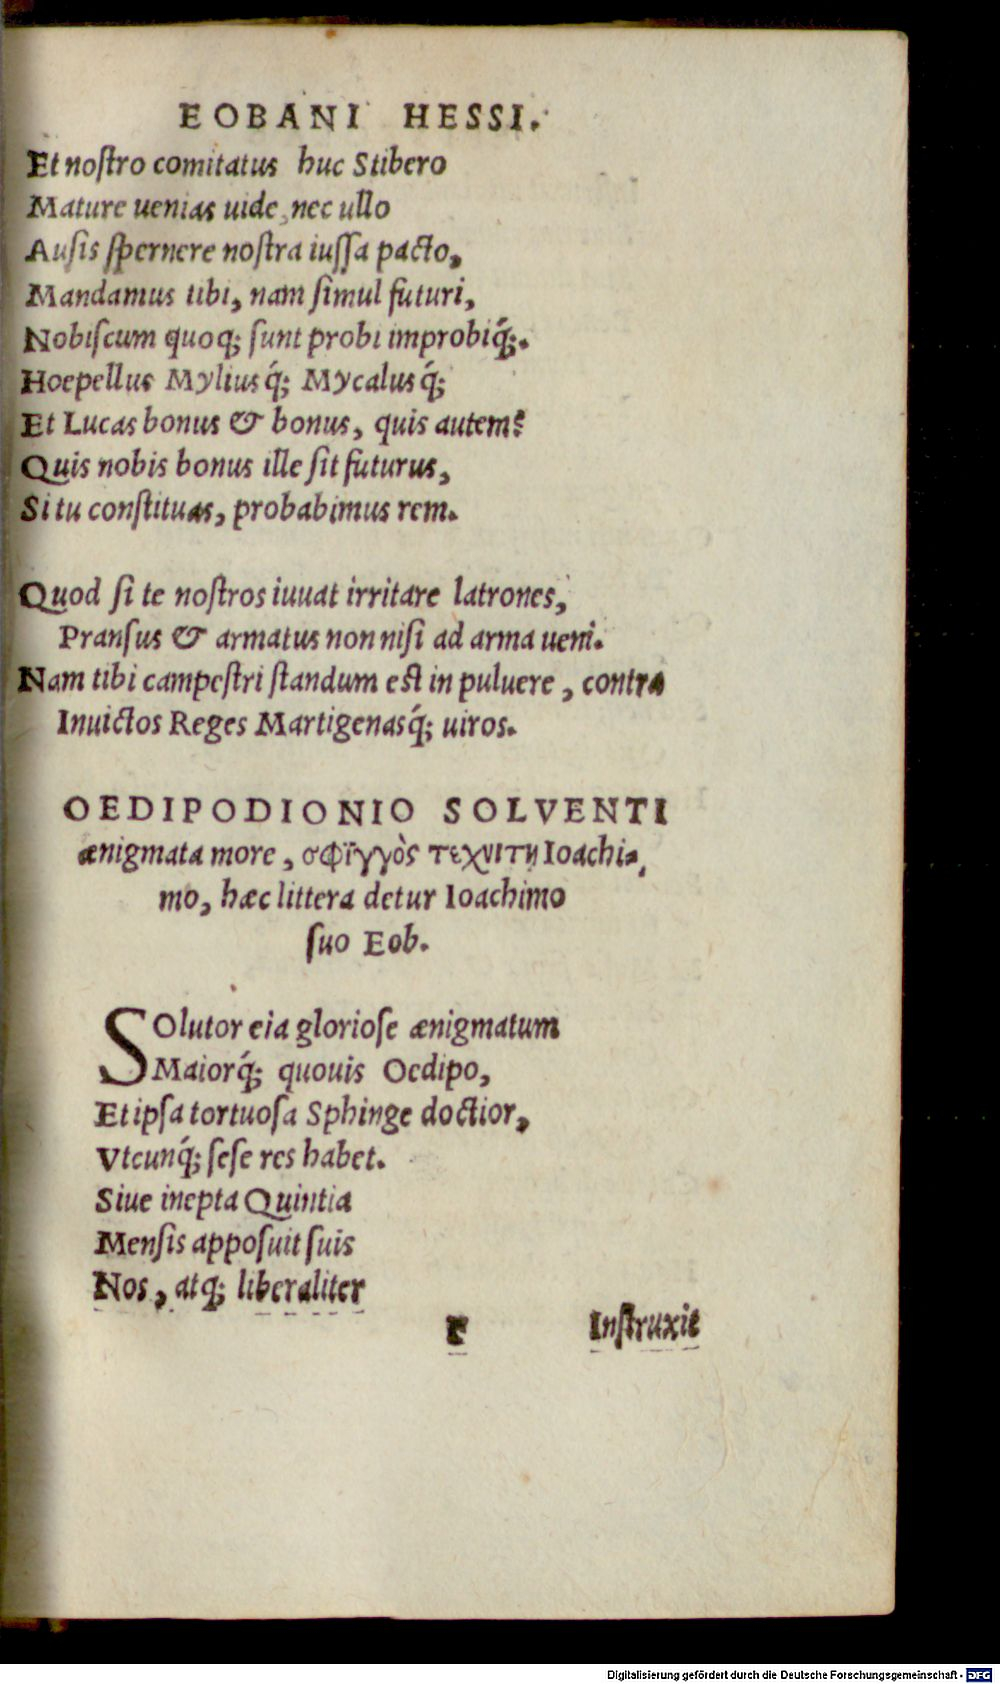 EOBANI HESSI.
Et noſtro comitatus huc Stibero
Mature uenias uide, nec ullo
Auſis ſpernere noſtra iuſſa pacto,
Mandamus tibi, nam ſimul futuri,
Nobiſcum quoq; ſunt probi improbiq́;.
Hoepellus Myliusq́; Mycalusq́;
Et Lucas bonus & bonus, quis autem?
Quis nobis bonus ille ſit futurus,
Si tu conſtituas, probabimus rem.
Quod ſi te noſtros iuuat irritare latrones,
Pranſus & armatus non niſi ad arma ueni.
Nam tibi campeſtri ſtandum eſt in puluere, contra
Inuictos Reges Martigenasq́; uiros.
OEDIPODIONIO SOLVENTI
ænigmata more, σφϊγγὸς τεχνιτη Ioachi-
mo, hæc littera detur Ioachimo
ſuo Eob.
SOlutor eia glorioſe ænigmatum
Maiorq́; quouis Oedipo,
Et ipſa tortuoſa Sphinge doctior,
Vtcunq́; ſeſe res habet.
Siue inepta Quintia
Menſis appoſuit ſuis
Nos, atq; liberaliter
F Inſtruxit
Digitalisierung gefördert durch die Deutsche Forschungsgemeinschaft - DFG